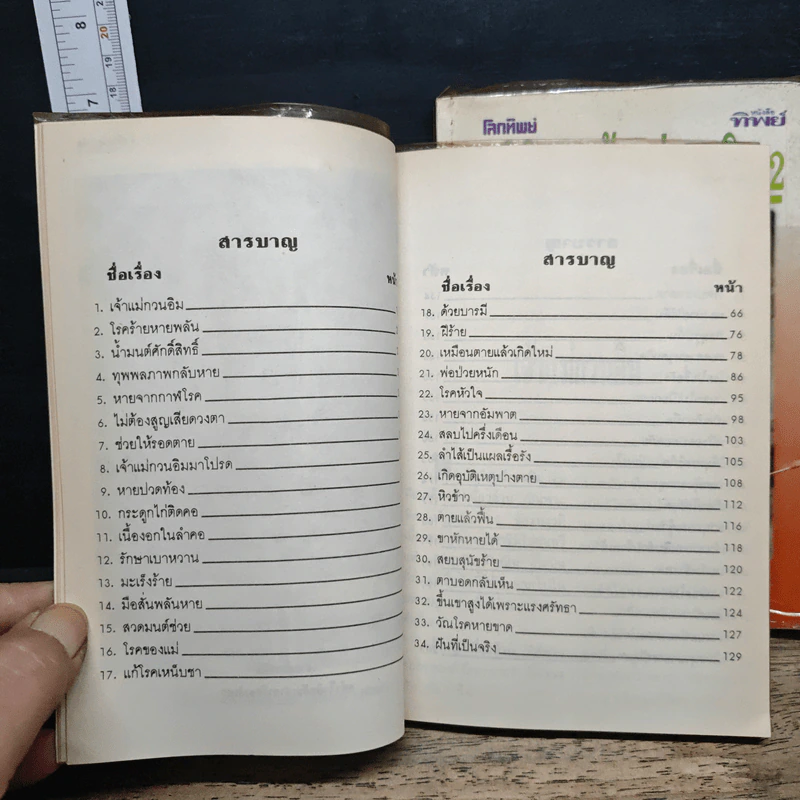 8
20
19
7
18
โลกทิพย์
หนังสือ
ทิพย์
2
สารบาญ
ชื่อเรื่อง
1. เจ้าแม่กวนอิม
2. โรคร้ายหายพลัน
3. น้ำมนต์ศักดิ์สิทธิ์
4. ทุพพลภาพกลับหาย
5. หายจากกาฬโรค
6. ไม่ต้องสูญเสียดวงตา
7. ช่วยให้รอดตาย
8. เจ้าแม่กวนอิมมาโปรด
9. หายปวดท้อง
10. กระดูกไก่ติดคอ
11. เนื้องอกในลำคอ
12. รักษาเบาหวาน
13. มะเร็งร้าย
14. มือสั่นพลันหาย
15. สวดมนต์ช่วย
16. โรคของแม่
17. แก้โรคเหน็บชา
สารบาญ
ชื่อเรื่อง หน้า
18. ด้วยบารมี 66
19. ฝีร้าย 76
20. เหมือนตายแล้วเกิดใหม่ 78
21. พ่อป่วยหนัก 86
22. โรคหัวใจ 95
23. หายจากอัมพาต 98
24. สลบไปครึ่งเดือน 103
25. ลำไส้เป็นแผลเรื้อรัง 105
26. เกิดอุบัติเหตุปางตาย 108
27. หิวข้าว 112
28. ตายแล้วฟื้น 116
29. ขาหักหายได้ 118
30. สยบสุนัขร้าย 120
31. ตาบอดกลับเห็น 122
32. ขึ้นเขาสูงได้เพราะแรงศรัทธา 124
33. วัณโรคหายขาด 127
34. ฝันที่เป็นจริง 129